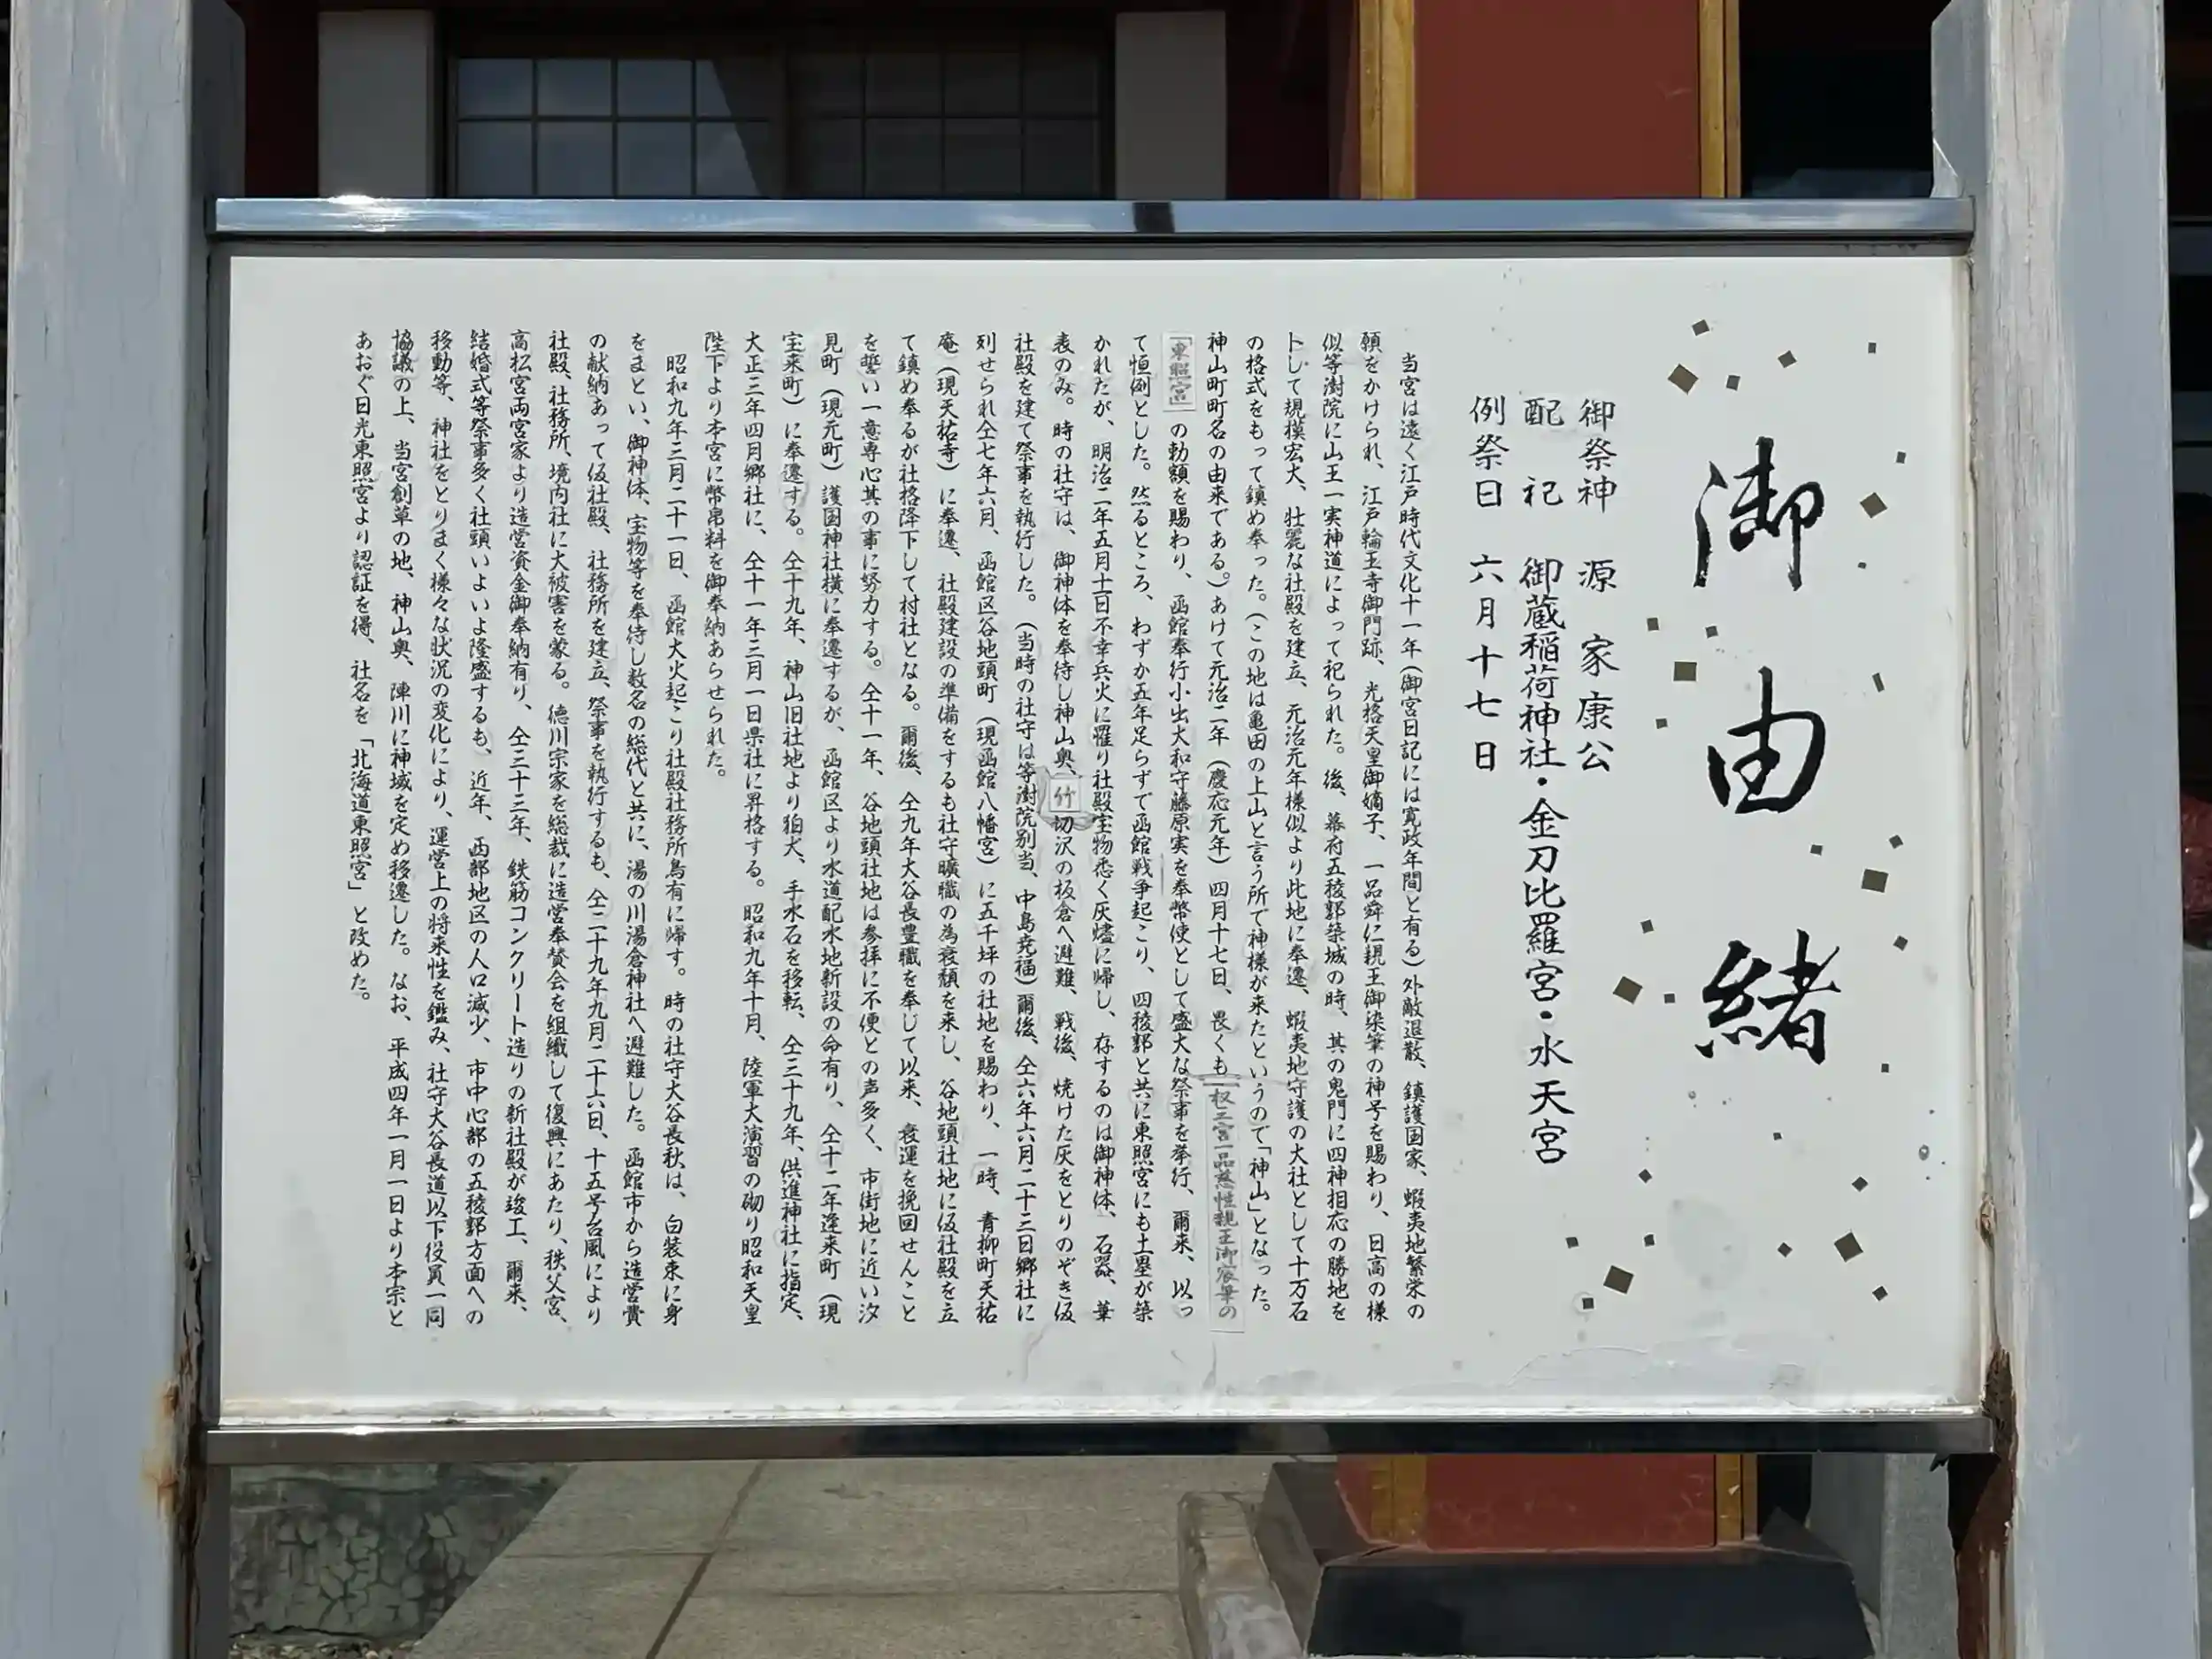 御由緒
御祭神　源　家康公
配　祀　御蔵稲荷神社・金刀比羅宮・水天宮
例祭日　六月十七日
当宮は遠く江戸時代文化十一年（御宮日記には寛政年間と有る）外敵退散、鎮護国家、蝦夷地繁栄の
願をかけられ、江戸輪王寺御門跡、光格天皇御嫡子、一品舜仁親王御染筆の神号を賜わり、日高の様
似等澍院に山王一実神道によって祀られた。後、幕府五稜郭築城の時、其の鬼門に四神相応の勝地を
卜して規模宏大、壮麗な社殿を建立、元治元年様似より此地に奉遷、蝦夷地守護の大社として十万石
の格式をもって鎮め奉った。（この地は亀田の上山と言う所で神様が来たというので「神山」となった。
神山町町名の由来である。）あけて元治二年（慶応元年）四月十七日、畏くも一枚工宮一品慈性親王御宸筆の
「東照宮」の勅額を賜わり、函館奉行小出大和守藤原実を奉幣使として盛大な祭事を挙行、爾来、以っ
て恒例とした。然るところ、わずか五年足らずで函館戦争起こり、四稜郭と共に東照宮にも土塁が築
かれたが、明治二年五月十一日不幸兵火に罹り社殿宝物悉く灰燼に帰し、存するのは御神体、石器、華
表のみ。時の社守は、御神体を奉待し神山奥、竹切沢の板倉へ避難、戦後、焼けた灰をとりのぞき仮
社殿を建て祭事を執行した。（当時の社守は等澍院別当、中島尭福）爾後、仝六年六月二十三日郷社に
列せられ仝七年六月、函館区谷地頭町（現函館八幡宮）に五千坪の社地を賜わり、一時、青柳町天祐
庵（現天祐寺）に奉遷、社殿建設の準備をするも社守曠職の為衰頽を来し、谷地頭社地に仮社殿を立
て鎮め奉るが社格降下して村社となる。爾後、仝九年大谷長豊職を奉じて以来、衰運を挽回せんこと
を誓い一意専心其の事に努力する。仝十一年、谷地頭社地は参拝に不便との声多く、市街地に近い汐
見町（現元町）護国神社横に奉遷するが、函館区より水道配水地新設の命有り、仝十二年逢来町（現
宝来町）に奉遷する。仝十九年、神山旧社地より狛犬、手水石を移転、仝三十九年、供進神社に指定、
大正三年四月郷社に、仝十一年三月一日県社に昇格する。昭和九年十月、陸軍大演習の砌り昭和天皇
陛下より本宮に幣帛料を御奉納あらせられた。
昭和九年三月二十一日、函館大火起こり社殿社務所烏有に帰す。時の社守大谷長秋は、白装束に身
をまとい、御神体、宝物等を奉待し数名の総代と共に、湯の川湯倉神社へ避難した。函館市から造営費
の献納あって仮社殿、社務所を建立、祭事を執行するも、仝二十九年九月二十六日、十五号台風により
社殿、社務所、境内社に大被害を蒙る。徳川宗家を総裁に造営奉賛会を組織して復興にあたり、秩父宮、
高松宮両宮家より造営資金御奉納有り、仝三十三年、鉄筋コンクリート造りの新社殿が竣工、爾来、
結婚式等祭事多く社頭いよいよ隆盛するも、近年、西部地区の人口減少、市中心部の五稜郭方面への
移動等、神社をとりまく様々な状況の変化により、運営上の将来性を鑑み、社守大谷長道以下役員一同
協議の上、当宮創草の地、神山奥、陣川に神域を定め移遷した。なお、平成四年一月一日より本宗と
あおぐ日光東照宮より認証を得、社名を「北海道東照宮」と改めた。